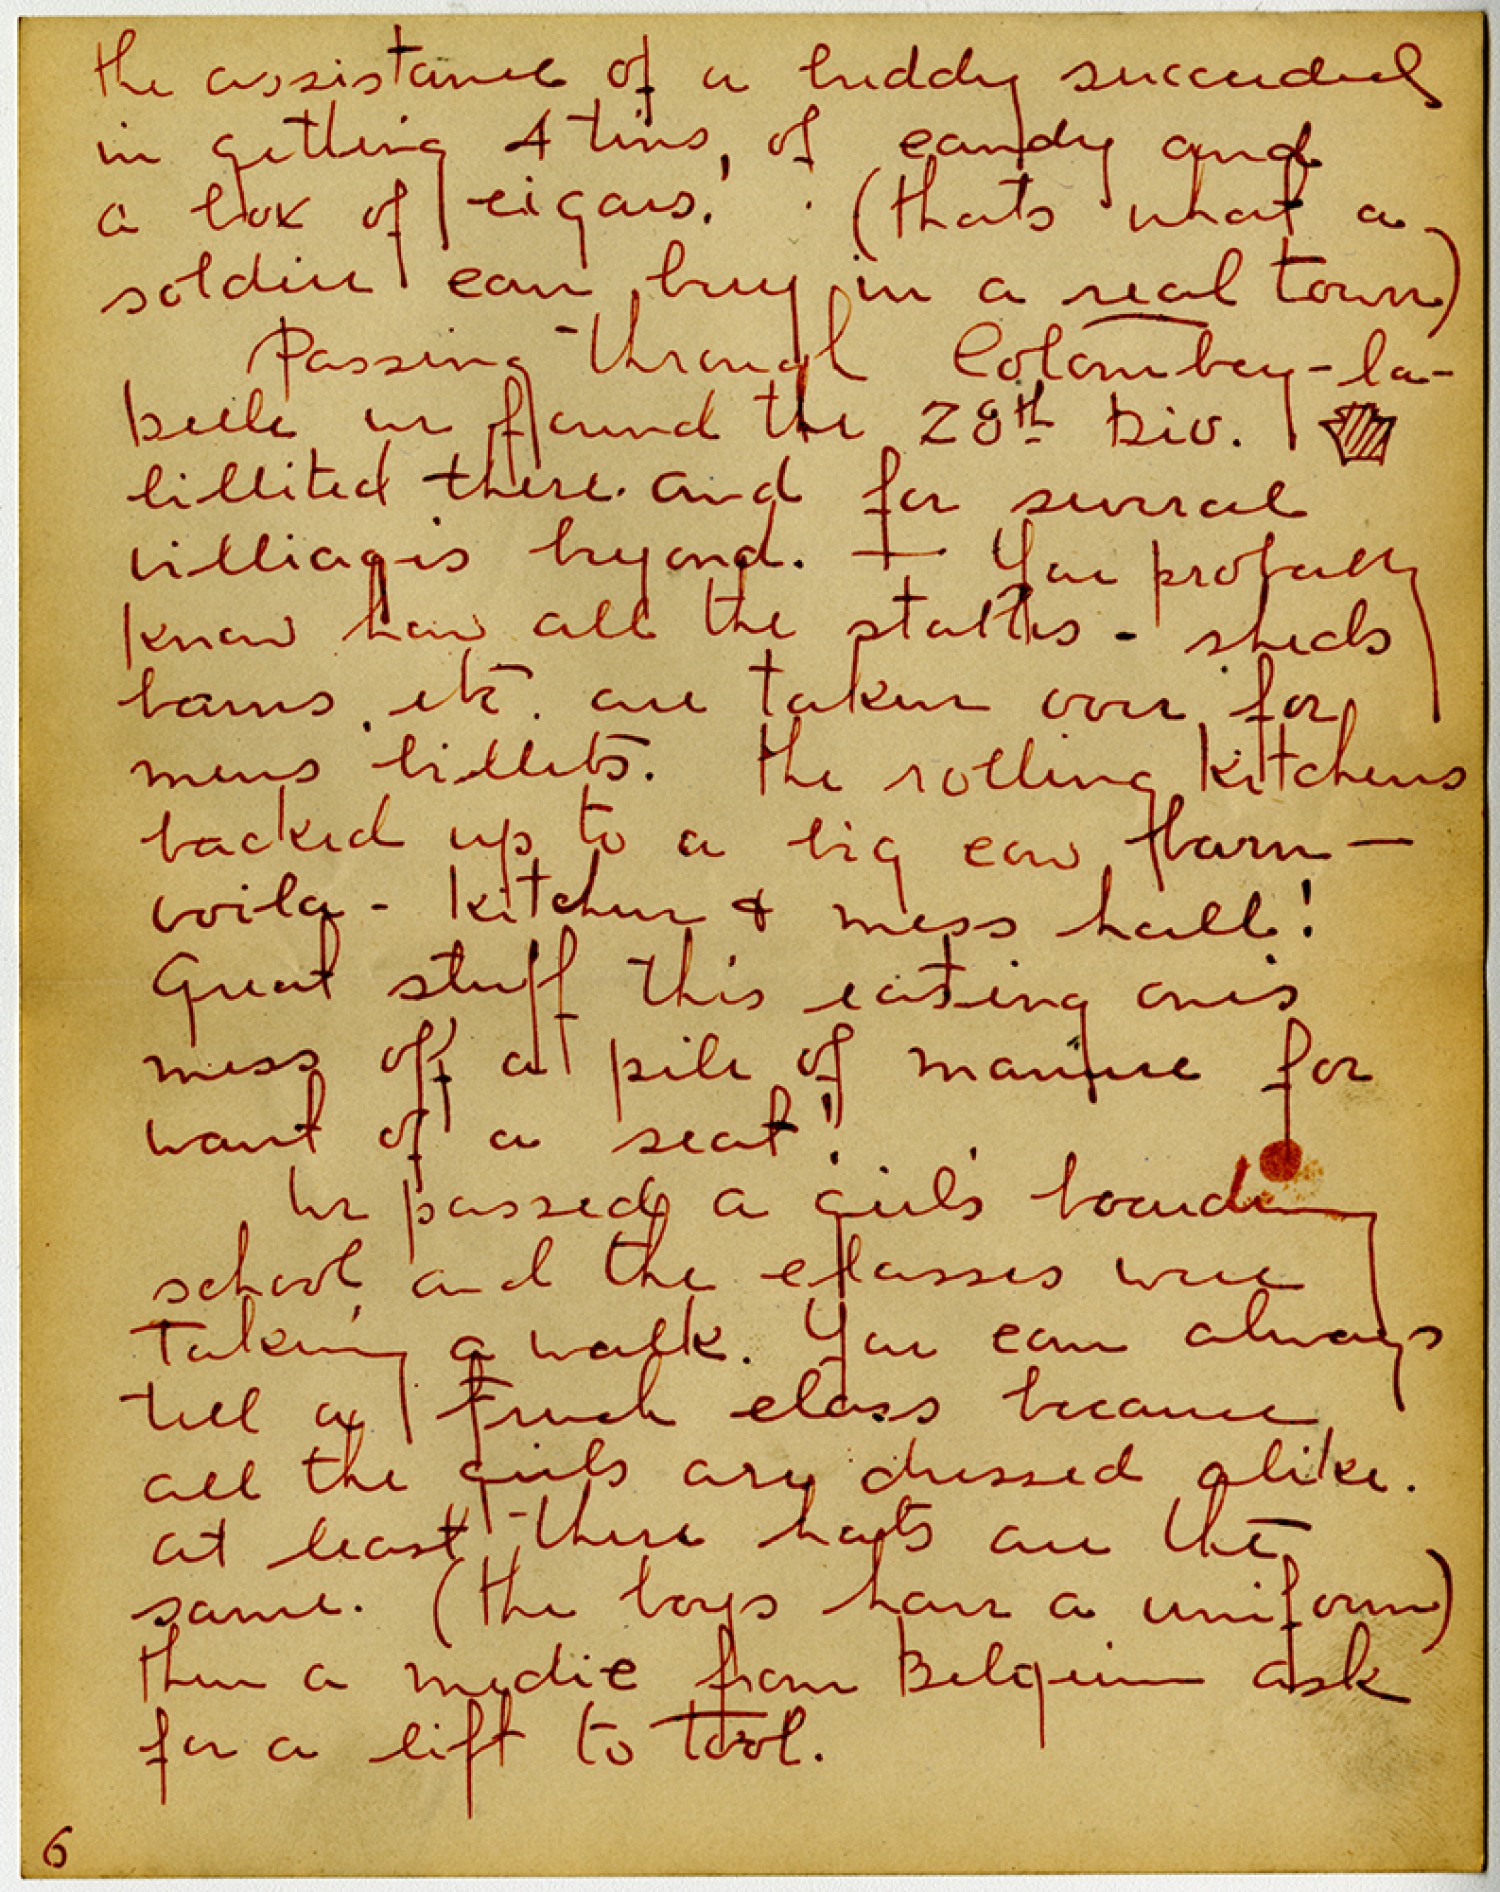 the assistance of a buddy succeeded
in getting 4 tins, of candy and
a box of cigars! (thats what a
soldier can buy in a real town)
Passing through Colombey-la-
belle we found the 28th Div.
billited there and for several
villiages beyond. — You probally
know how all the stalles - sheds
barns, etc. are taken over for
mens billets. The rolling kitchens
backed up to a big cow barn —
voila - kitchen & mess hall!
Great stuff this eating ones
mess off a pile of manure for
want of a seat!
We passed a girls boarding
school and the classes were
taking a walk. You can always
tell a French class because
all the girls are dressed alike.
at least there hats are the
same. (the boys have a uniform)
then a medic from Belgium ask
for a lift to Toul.
6